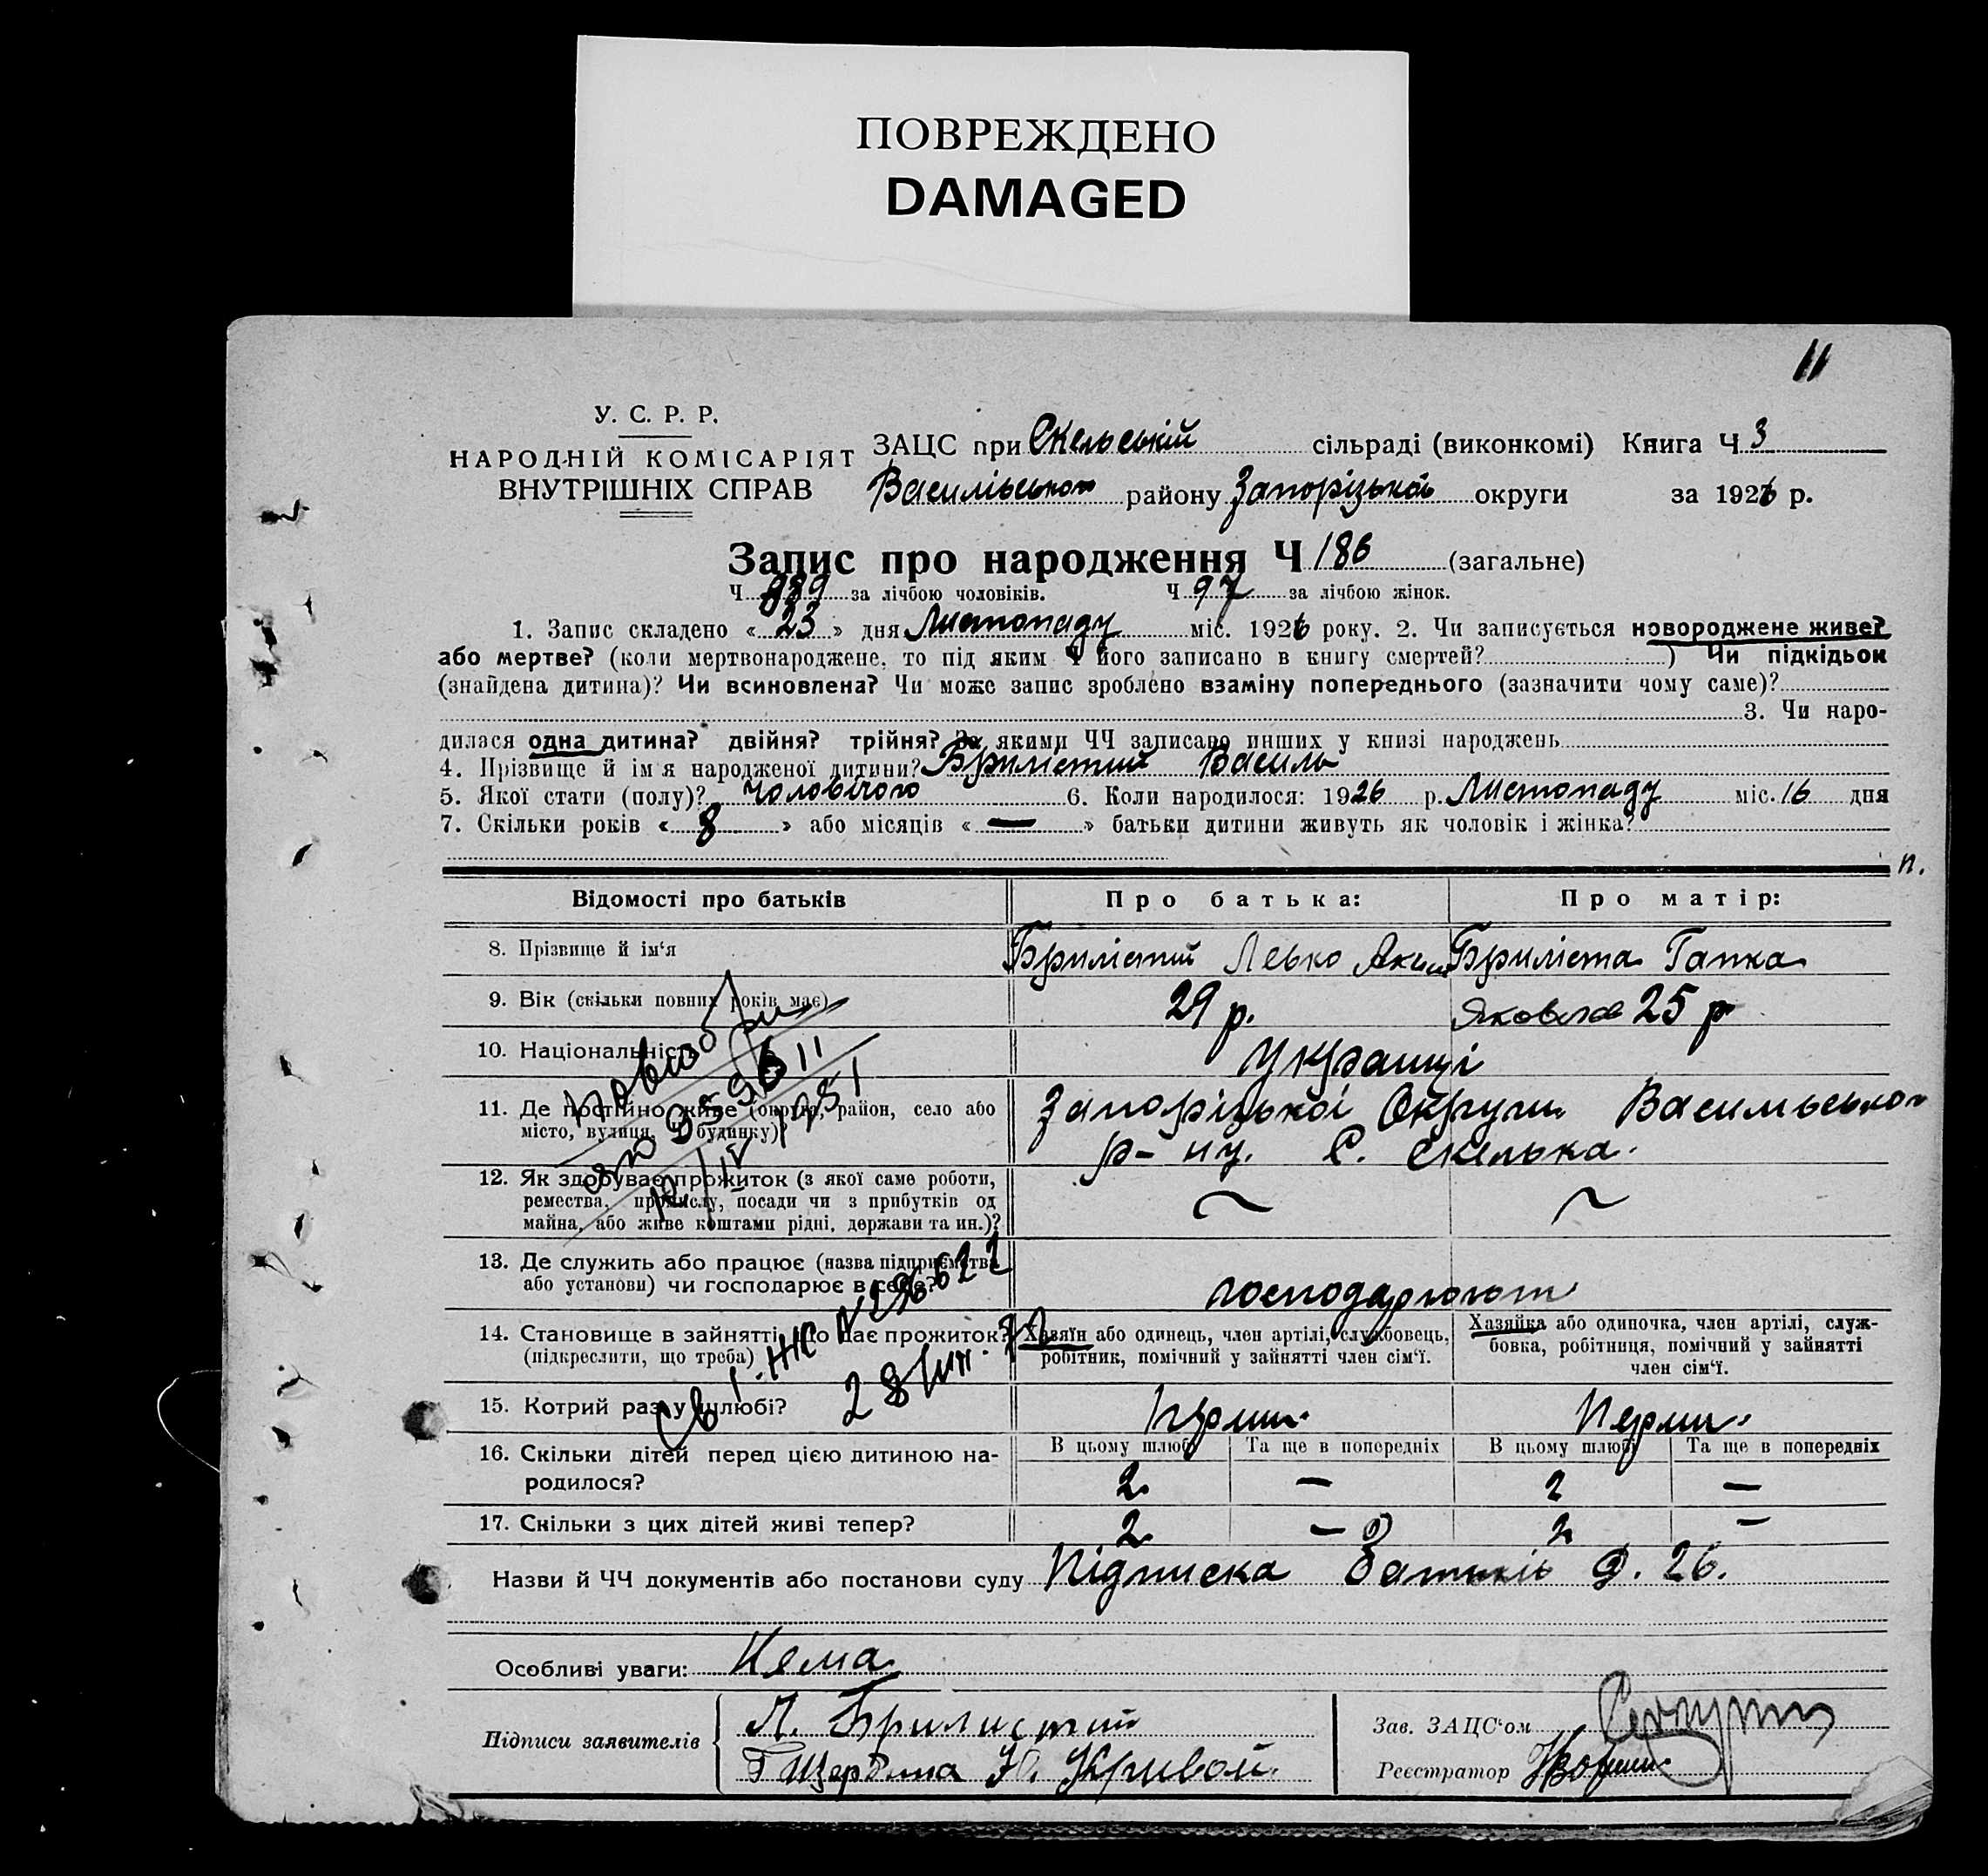 ПОВРЕЖДЕНО
DAMAGED
11
У. С. Р. Р.
НАРОДНІЙ КОМІСАРІЯТ
ВНУТРІШНІХ СПРАВ
ЗАЦС при Скельській сільраді (виконкомі) Книга Ч 3
Василівського району Запорізькой округи за 1926 р.
Запис про народження Ч 186 (загальне)
Ч 89 за лічбою чоловіків. Ч 97 за лічбою жінок.
1. Запис складено « 23 » дня Листопаду міс. 1926 року. 2. Чи записується новороджене живе?
або мертве? (коли мертвонароджене, то під яким Ч його записано в книгу смертей? ) Чи підкідьок
(знайдена дитина)? Чи всиновлена? Чи може запис зроблено взаміну попереднього (зазначити чому саме)?
3. Чи наро-
дилася одна дитина? двійня? трійня? За якими ЧЧ записано инших у книзі народжень
4. Прізвище й ім'я народженої дитини? Брилістий Василь
5. Якої стати (полу)? Чоловічого 6. Коли народилося: 1926 р. Листопаду міс. 16 дня
7. Скільки років « 8 » або місяців « — » батьки дитини живуть як чоловік і жінка?
п.
Відомості про батьків Про батька: Про матір:
8. Прізвище й ім'я Брилістий Левко Яким Бриліста Гапка
9. Вік (скільки повних років має) 29 р. Яковлев 25 р
10. Національність Українці
11. Де постійно живе (округа, район, село або Запорізької Округи Васильського
місто, вулиця, Ч будинку)? р-ну. С. Скелька.
12. Як здобуває прожиток (з якої саме роботи,
ремества, промислу, посади чи з прибутків од
майна, або живе коштами рідні, держави та ин.)?
13. Де служить або працює (назва підприємства
або установи) чи господарює в селі? господарюють
14. Становище в зайнятті, що дає прожиток? Хазяїн або одинець, член артілі, службовець, Хазяйка або одиночка, член артілі, служ-
(підкреслити, що треба) робітник, помічний у зайнятті член сім'ї. бовка, робітниця, помічний у зайнятті
член сім'ї.
15. Котрий раз у шлюбі? Перший Перши
16. Скільки дітей перед цією дитиною на- В цьому шлюбі Та ще в попередніх В цьому шлюбі Та ще в попередніх
родилося? 2 — 2 —
17. Скільки з цих дітей живі тепер? 2 — 2 —
Назви й ЧЧ документів або постанови суду Підписка Батьків 26.
Особливі уваги: Нема
Підписи заявителів Л. Брилистий
Щербина Кривой
Зав. ЗАЦС'ом
Реєстратор